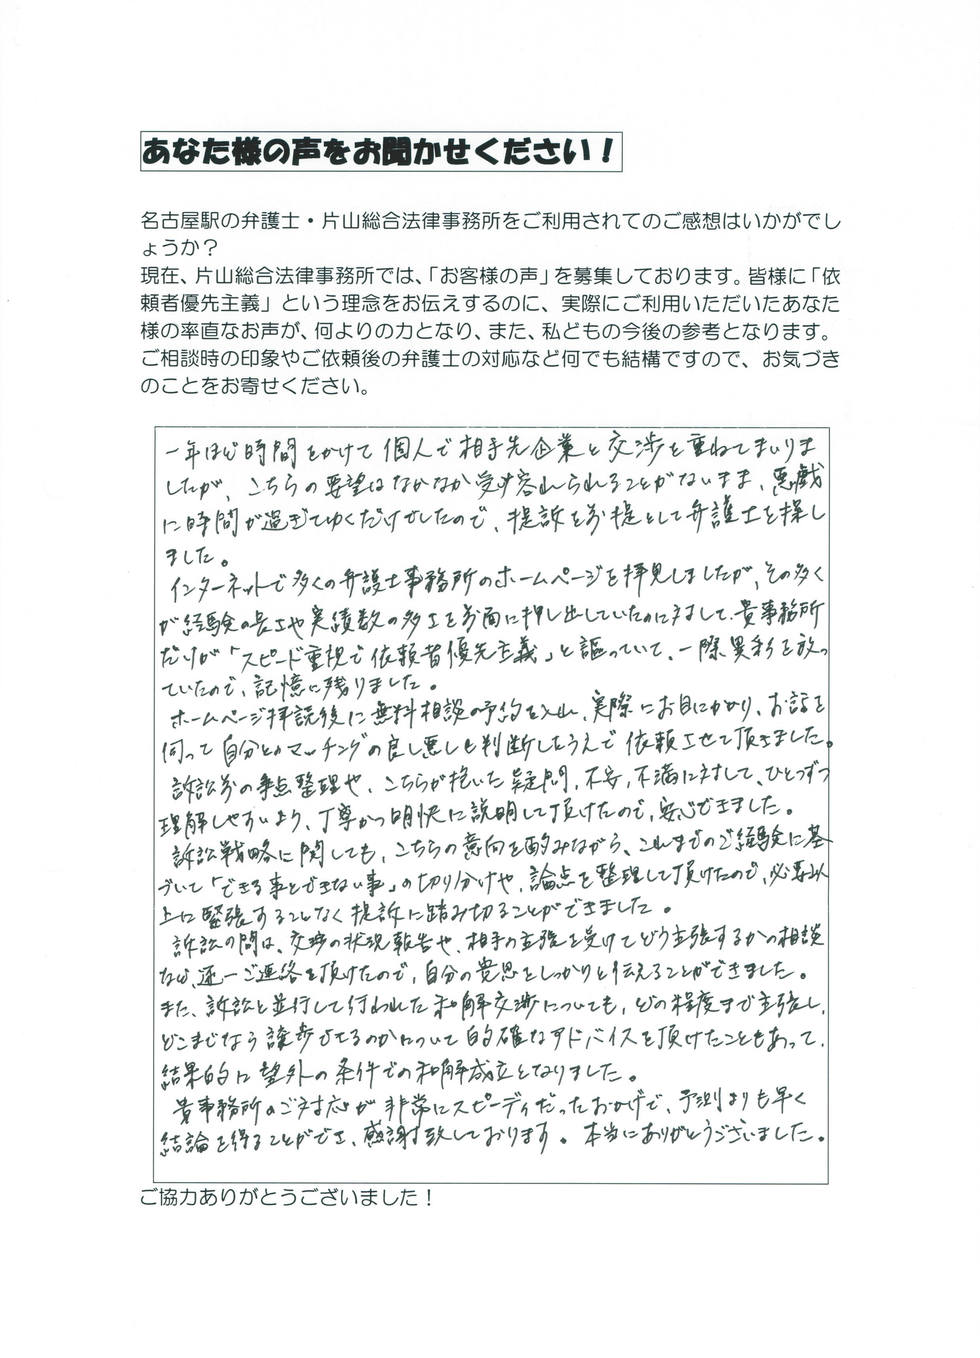 あなた様の声をお聞かせください！
名古屋駅の弁護士・片山総合法律事務所をご利用されてのご感想はいかがでし
ょうか？
現在、片山総合法律事務所では、「お客様の声」を募集しております。皆様に「依
頼者優先主義」という理念をお伝えするのに、実際にご利用いただいたあなた
様の率直なお声が、何よりの力となり、また、私どもの今後の参考となります。
ご相談時の印象やご依頼後の弁護士の対応など何でも結構ですので、お気づき
のことをお寄せください。
一年ほど時間をかけて個人で相手先企業と交渉を重ねてまいりま
したが、こちらの要望はなかなか受け容れられることがないまま、悪戯
に時間が過ぎてゆくだけでしたので、提訴を前提として弁護士を探し
ました。
インターネットで多くの弁護士事務所のホームページを拝見しましたが、その多く
が経験の長さや実績数の多さを前面に押し出していたのに対して、貴事務所
だけが「スピード重視で依頼者優先主義」と謳っていて、一際異彩を放っ
ていたので、記憶に残りました。
ホームページ拝読後に無料相談の予約を入れ、実際にお目にかかり、お話を
伺って自分とのマッチングの良し悪しも判断したうえで依頼させて頂きました。
訴訟前の争点整理や、こちらが抱いた疑問、不安、不満に対して、ひとつずつ
理解しやすいよう、丁寧かつ明快に説明して頂けたので、安心できました。
訴訟戦略に関しても、こちらの意向を酌みながら、これまでのご経験に基
づいて「できる事とできない事」の切り分けや、論点を整理して頂けたので、必要以
上に緊張することなく提訴に踏み切ることができました。
訴訟の間は、交渉の状況報告や、相手の主張を受けてどう主張するかの相談
など、逐一ご連絡を頂けたので、自分の意思をしっかりと伝えることができました。
また、訴訟と並行して行われた和解交渉についても、どの程度まで主張し、
どこまでなら譲歩できるのかについて的確なアドバイスを頂けたこともあって、
結果的に望外の条件での和解成立となりました。
貴事務所のご対応が非常にスピーディだったおかげで、予測よりも早く
結論を得ることができ、感謝致しております。本当にありがとうございました。
ご協力ありがとうございました！